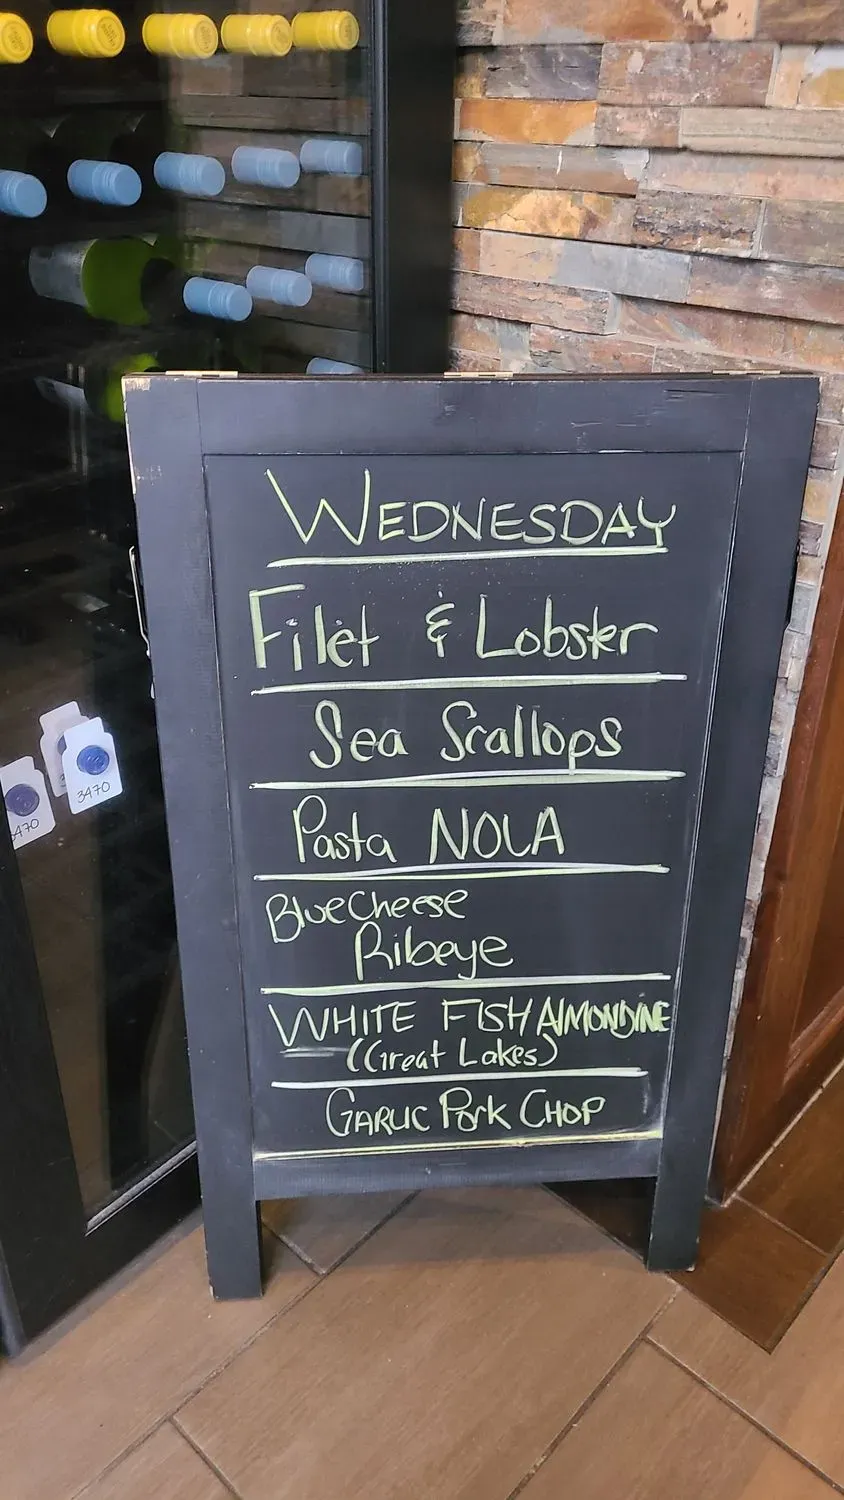 WEDNESDAY
Filet & Lobster
Sea Scallops
Pasta NOLA
Blue Cheese
Ribeye
WHITE FISH AlMONDINE
(Great Lakes)
GARLIC Pork CHOP
3470
3470